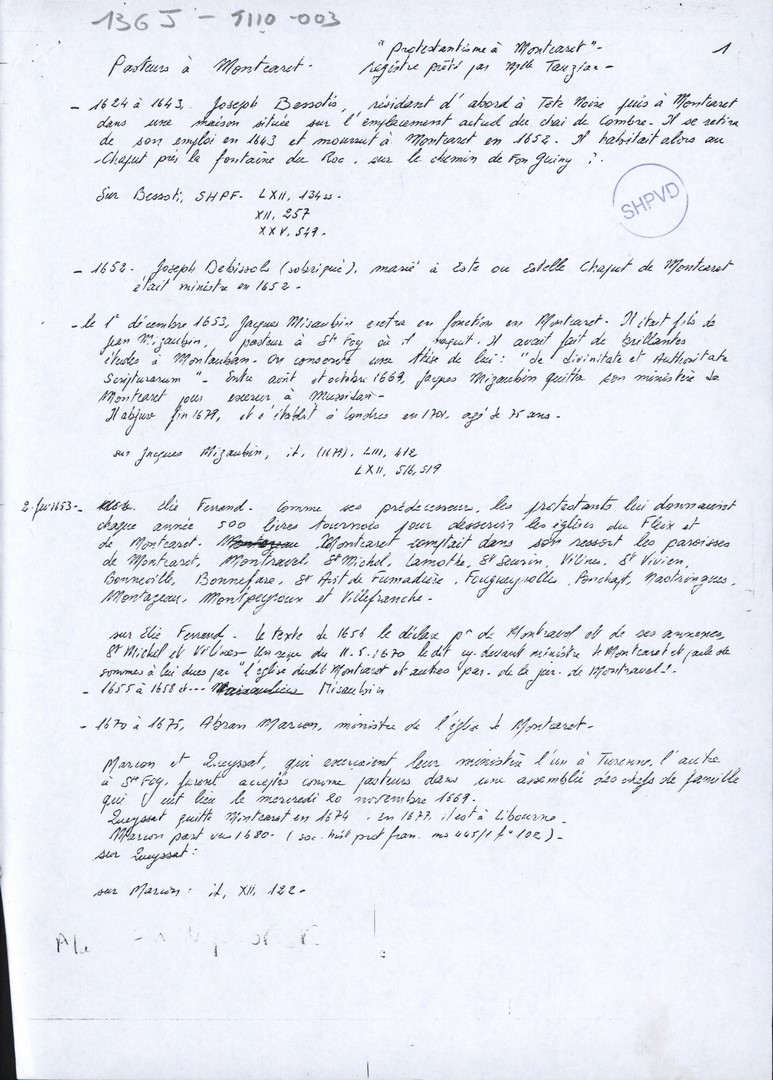 136 J - T110 - 003
"Protestantisme à Montcaret" -
1
Pasteurs à Montcaret -
registre prêté par Mlle Tauziac -
- 1624 à 1643. Joseph Bessotis, résidant d'abord à Tête Noire puis à Montcaret
dans une maison située sur l'emplacement actuel du chai de Combre. Il se retira
de son emploi en 1643 et mourut à Montcaret en 1652. Il habitait alors au
Chaput près la fontaine du Roc, sur le chemin de Fon Guiny ?.
Sur Bessoti, SHPF. LXII, 134 ss -
XII, 257
XXV, 549 -
SHPVD
- 1652. Joseph Debissols (sobriqué), marié à Este ou Estelle Chaput de Montcaret
était ministre en 1652 -
- le 1er décembre 1653, Jacques Misaubin entra en fonction en Montcaret. Il était fils de
Jean Mizaubin, pasteur à Ste Foy où il naquit. Il avait fait de brillantes
études à Montauban. On conserve une thèse de lui : "de divinitate et Authoritate
Scripturarum" - Entre août et octobre 1669, Jacques Mizaubin quitta son ministère de
Montcaret pour exercer à Mussidan -
Il abjura fin 1679, et s'établit à Londres en 1701, agé de 75 ans -
sur Jacques Mizaubin, it, (1679), LIII, 412
LXII, 516, 519
2. fev 1653 - Elie Ferrand. Comme ses prédécesseurs, les protestants lui donnaient
chaque année 500 livres tournois pour desservir les églises du Fleix et
de Montcaret. Montcaret comptait dans son ressort les paroisses
de Montcaret, Montravel, St Michel, Lamothe, St Seurin, Vélines, St Vivien,
Bonneville, Bonnefare, St Avit de Fumadière, Fougueyrolles, Ponchapt, Nastringues,
Montazeau, Montpeyroux et Villefranche -
sur Elie Ferrand - le texte de 1656 le déclare pr de Montravel et de ses annexes,
St Michel et Vélines - Un reçu du 11-5-1670 le dit cy-devant ministre de Montcaret et parle de
sommes à lui dues par "l'église dudit Montcaret et autres par. de la jur. de Montravel".
- 1655 à 1658 et --- Misaubin
- 1670 à 1675, Abran Marcon, ministre de l'église de Montcaret -
Marcon et Queyssat, qui exerçaient leur ministère l'un à Turenne, l'autre
à Ste Foy, furent acceptés comme pasteurs dans une assemblée des chefs de famille
qui eut lieu le mercredi 20 novembre 1669.
Queyssat quitte Montcaret en 1674 - en 1677, il est à Libourne -
Marcon part vers 1680. (soc. hist prot fran. ms 445/1 f° 102) -
sur Queyssat :
sur Marcon : it, XII, 122 -